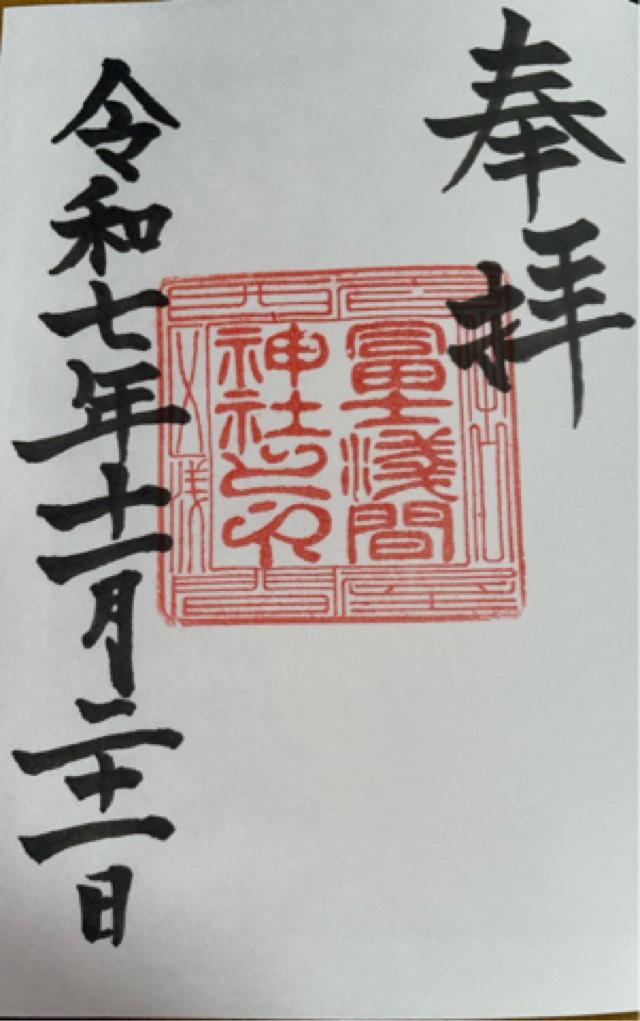 奉拝
冨士浅間
神社之印
令和七年十一月二十一日